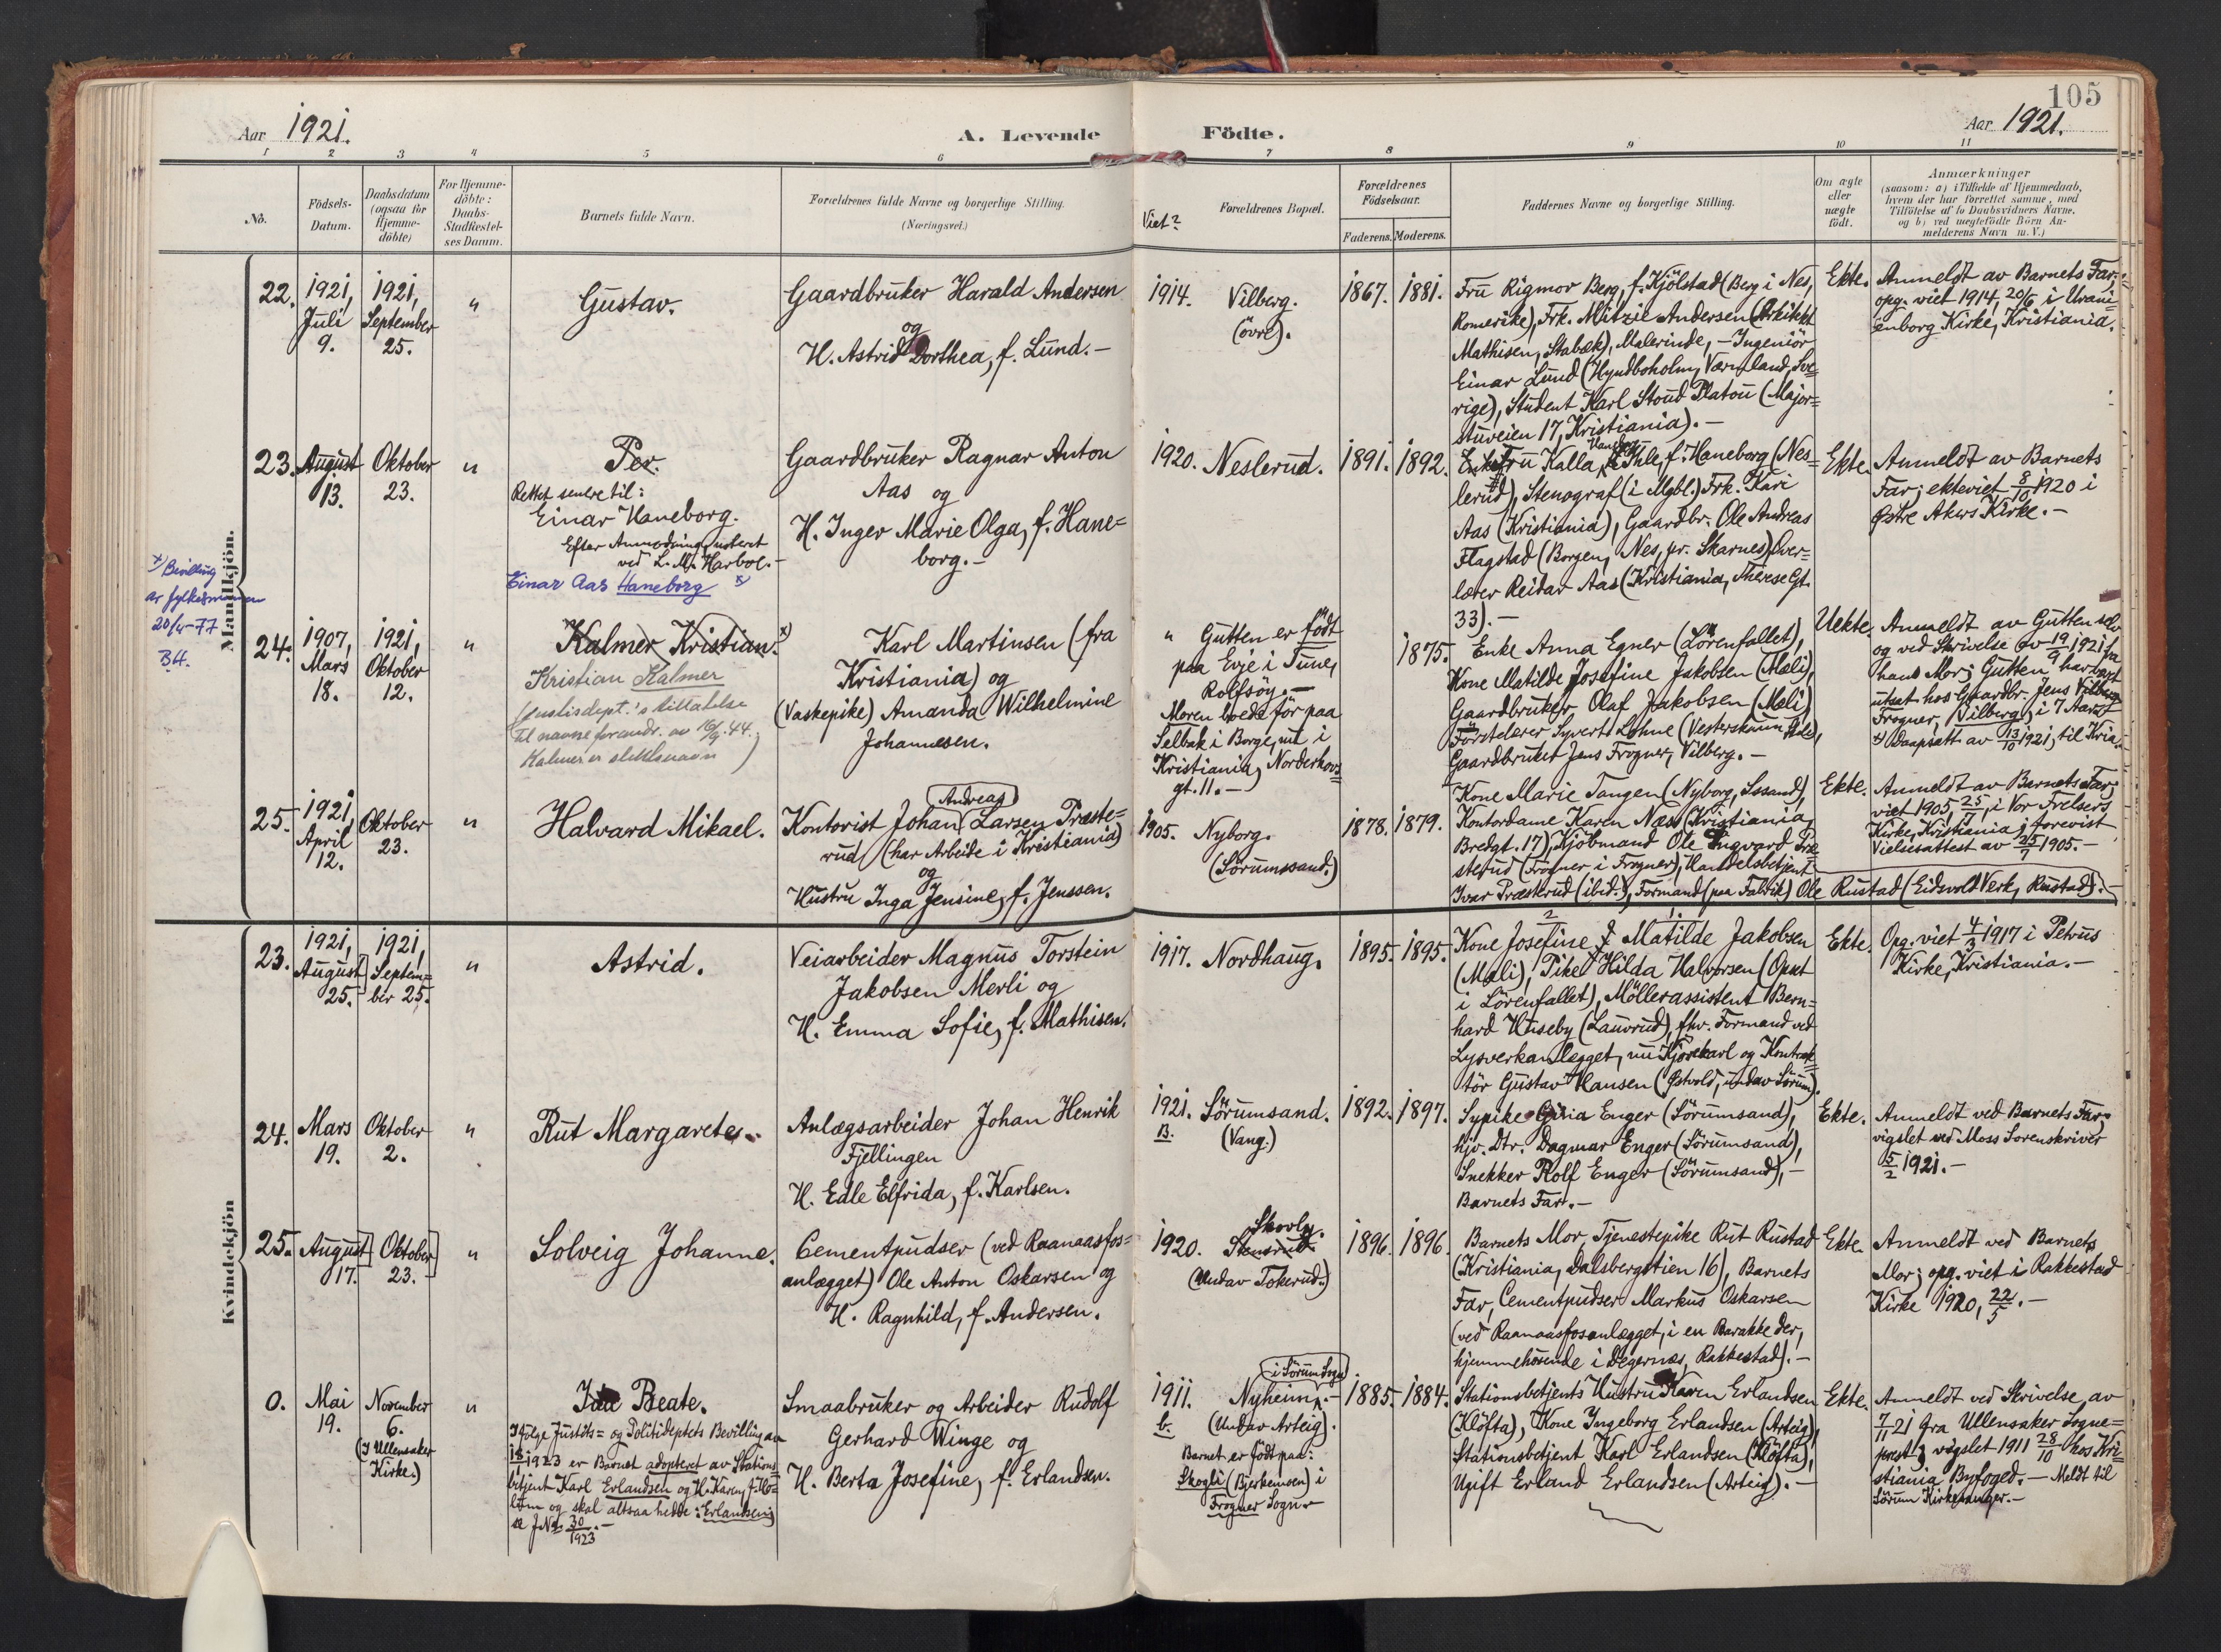 105
Aar 1921.
A. Levende Födte.
Aar 1921.
1 2 3 4 5 6 7 8 9 10 11
No.
Födsels-
Datum.
Daabsdatum
(ogsaa for
Hjemme-
döbte)
For Hjemme-
döbte:
Daabs-
Stadfæstel-
ses Datum.
Barnets fulde Navn.
Forældrenes fulde Navne og borgerlige Stilling.
(Næringsvei.)
Viet?
Forældrenes Bopæl.
Forældrenes
Födselsaar.
Faderens. Moderens.
Faddernes Navne og borgerlige Stilling.
Om ægte
eller
uægte
födt.
Anmærkninger
(saasom: a) i Tilfælde af Hjemmedaab,
hvem der har forrettet samme, med
Tilföielse af to Daabsvidners Navne,
og b) ved uegtefödte Börn An-
melderens Navn m. V.)
Mandkjön.
22.
1921,
Juli
9.
1921,
September
25.
"
Gustav.
Gaardbruker Harald Andersen
og
H. Astrid Dorthea, f. Lund. -
1914.
Vilberg.
(övre).
1867. 1881.
Fru Rigmor Berg, f. Kjölstad (Berg i Nes,
Romerike), Frk. Mitzie Andersen (Arkitekt
Mathisen, Stabæk), Malerinde, - Ingeniör
Einar Lund (Hyndboholm, Værmland, Sve=
rige), Student Karl Stoud Platou (Major=
stuveien 17, Kristiania). -
Ekte.
Anmeldt av Barnets Far;
opg. viet 1914, 20/6 i Urani=
enborg Kirke, Kristiania.
23.
August
13.
Oktober
23.
"
Per.
Rettet senere til:
Einar Haneborg.
Efter Anmodning noteret
ved L. M. Harboe. -
Einar Aas Haneborg x)
x) Bevilling
av fylkesmannen
20/4-77
BH.
Gaardbruker Ragnar Anton
Aas og
H. Inger Marie Olga, f. Hane=
borg. -
1920.
Neslerud.
1891. 1892.
Enkefru Kalla Ihle, f. Haneborg (Nes=
lerud), Stenograf (i Mgbl.) Frk. Kari
Aas (Kristiania), Gaardbr. Ole Andreas
Flagstad (Borgen, Nes, pr. Skarnes), Over=
lærer Reidar Aas (Kristiania, Therese Gt.
33). -
Ekte.
Anmeldt av Barnets
Far; ekteviet 8/10 1920 i
Østre Akers Kirke. -
24.
1907,
Mars
18.
1921,
Oktober
12.
"
Kalmer Kristian. x)
Kristian Kalmer
(Justisdept.'s tillatelse
til navneforandr. av 16/9.44.
Kalmer er slektsnavn)
Karl Martinsen (fra
Kristiania) og
(Vaskepike) Amanda Wilhelmine
Johannesen.
" Gutten er födt
paa Evje i Tune,
Rolfsöy. -
Moren boede för paa
Selbak i Borge, nu i
Kristiania, Norderhovs=
gt. 11. -
1875.
Enke Anna Egner (Lörenfallet),
Kone Matilde Josefine Jakobsen (Mæli),
Gaardbruker Olaf Jakobsen (Mæli)
Förstelærer Syvert Lohne (Vesterskaun Skole),
Gaardbruker Jens Frogner, Vilberg. -
Uekte.
Anmeldt av Gutten selv
og ved Skrivelse av 19/9 1921 fra
hans Mor; Gutten har været
utsat hos Gaardbr. Jens
Frogner, Vilberg, i 7 Aar.
x) Daapsatt. av 13/10 1921, til Kria.
25.
1921,
April
12.
Oktober
23.
"
Halvard Mikael.
Andreas
Kontorist Johan Larsen Præste=
rud (har Arbeide i Kristiania)
og
Hustru Inga Jensine, f. Jenssen.
1905.
Nyborg.
(Sörumssand.)
1878. 1879.
Kone Marie Tangen (Nyborg, Sssand),
Kontordame Karen Næss (Kristiania,
Bredgt. 17), Kjöbmand Ole Ingvard Præ
sterud (Frogner i Frogner), Handelsbetjent
Ivar Præsterud (ibid.), Formand (paa Fabrik) Ole Rustad (Eidsvold Verk, Rustad). -
Ekte.
Anmeldt av Barnets Far;
viet 1905, 25/7, i Vor Frelsers
Kirke, Kristiania; forevist
Vielsesattest av 25/7 1905. -
Kvindekjön
23.
1921,
August
25.
1921,
Septem=
ber 25.
"
Astrid.
Veiarbeider Magnus Torstein
Jakobsen Merli og
H. Emma Sofie, f. Mathisen.
1917.
Nordhaug.
1895. 1895.
2 1.
Kone Josefine Matilde Jakobsen
(Mæli), Pike Hilda Halvorsen (Opset
i Lörenfallet), Möllerassistent Bern=
hard Huseby (Lauvrud), fhv. Formand ved
Lysverkanlægget, nu Kjörekarl og Kontrak=
tör Gustav Hansen (Østvold, undav Sörum).
Ekte.
Opg. viet 4/3 1917 i Petrus
Kirke, Kristiania. -
24.
Mars
19.
Oktober
2.
"
Rut Margarete.
Anlægsarbeider Johan Henrik
Fjellingen
H. Edle Elfrida, f. Karlsen.
1921.
B.
Sörumsand.
(Vang.)
1892. 1897.
Sypike Enger (Sörumsand),
hjv. Dtr. Dagmar Enger (Sörumsand),
Snekker Rolf Enger (Sörumsand), -
Barnets Far. -
Ekte.
Anmeldt ved Barnets Far;
vigslet ved Moss Sorenskriver
5/2 1921. -
25.
August
17.
Oktober
23.
"
Solveig Johanne.
Cementpudser (ved Raanaasfos=
anlægget) Ole Anton Oskarsen og
H. Ragnhild, f. Andersen.
1920.
Skovly.
Stensrud.
(Undav Tokerud.)
1896. 1896.
Barnets Mor, Tjenestepike Rut Rustad
(Kristiania, Dalsbergstien 16), Barnets
Far, Cementpudser Markus Oskarsen
(ved Raanaasfosanlægget, i en Barakke der,
hjemmehörende i Degernes, Rakkestad). -
Ekte.
Anmeldt ved Barnets
Mor; opg. viet i Rakkestad
Kirke 1920, 22/5. -
0.
Mai
19.
November
6.
(I Ullensaker
Kirke.)
"
Beate.
Ifölge Justits= og Politideptets Bevilling av
1923 er Barnet adopteret av Stations=
betjent Karl Erlandsen og H. Karen, f.
og skal altsaa hedde: Erlandsen;
se J.No. 30/1923. -
Smaabruker og Arbeider Rudolf
Gerhard Winge og
H. Berta Josefine, f. Erlandsen.
1911.
b.
i Sörum Sogn
Nyheim, -
(Undav Arteig).
Barnet er födt paa:
Skogli (Bjerkemoen) i
Frogner Sogn
1885. 1884.
Stationsbetjents Hustru Karen Erlandsen
(Klöfta), Kone Ingeborg Erlandsen (Arteig),
Stationsbetjent Karl Erlandsen (Klöfta),
Ugift Erland Erlandsen (Arteig). -
Ekte.
Anmeldt ved Skrivelse av
7/11 21 fra Ullensaker Sogne=
prest; vigslet 1911 28/10 hos Kri=
stiania Byfoged. - Meldt til
Sörum Kirkesanger. -